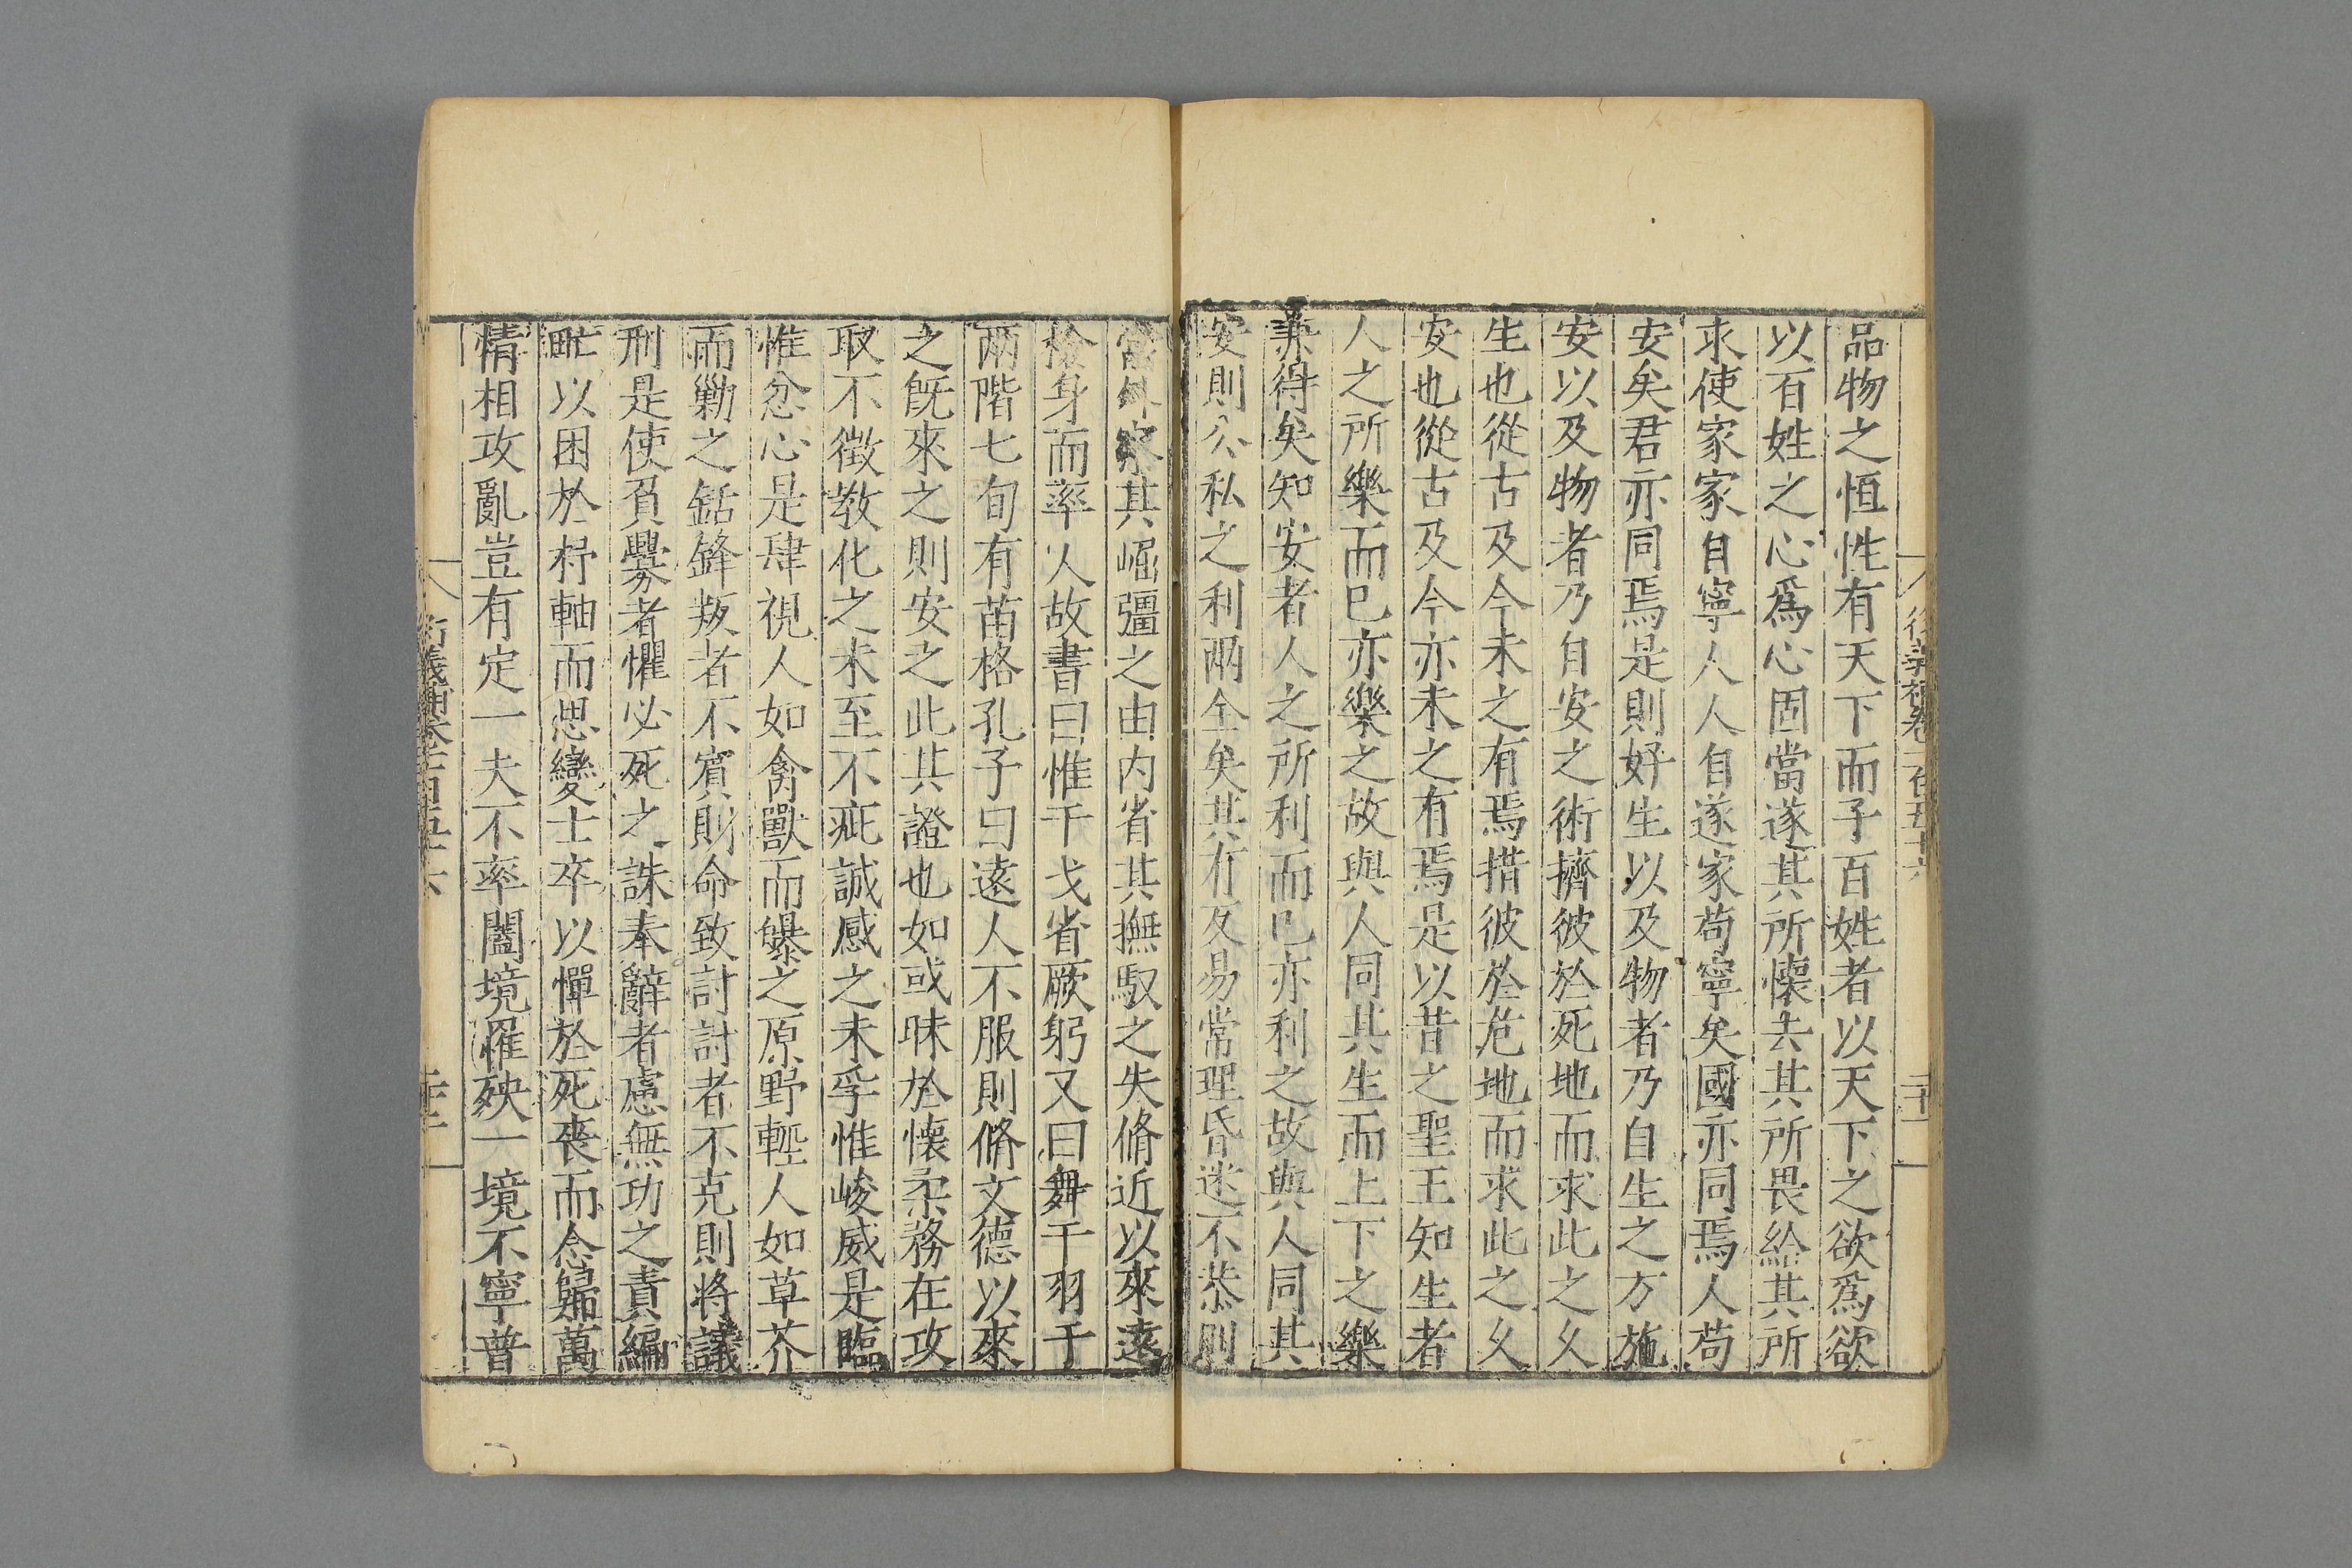 品物之恒性有天下而子百姓者以天下之欲爲欲
以百姓之心爲心固當遂其所懷去其所畏給其所
求使家家自寧人人自遂家苟寧矣國亦同焉人苟
安矣君亦同焉是則好生以及物者乃自生之方施
安以及物者乃自安之術擠彼於死地而求此之久
生也從古及今未之有焉措彼於危地而求此之久
安也從古及今亦未之有焉是以昔之聖王知生者
人之所樂而已亦樂之故與人同其生而上下之樂
兼得矣知安者人之所利而已亦利之故與人同其
安則公私之利兩全矣其有反易常理昏迷不恭則
當外察其崛彊之由内省其撫馭之失脩近以來遠
檢身而率人故書曰惟干戈省厥躬又曰舞干羽于
兩階七旬有苗格孔子曰遠人不服則脩文德以來
之旣來之則安之此其證也如或昧於懷柔務在攻
取不徵教化之未至不疵誠感之未孚惟峻威是臨
惟忿心是肆視人如禽獸而曝之原野輕人如草芥
而勦之銛鋒叛者不賓則命致討討者不克則將議
刑是使負釁者懼必死之誅奉辭者慮無功之責編
甿以困於杼軸而思變士卒以憚於死喪而念歸萬
情相攻亂豈有定一夫不率闔境罹殃一境不寧普
衍義補卷一百五十六